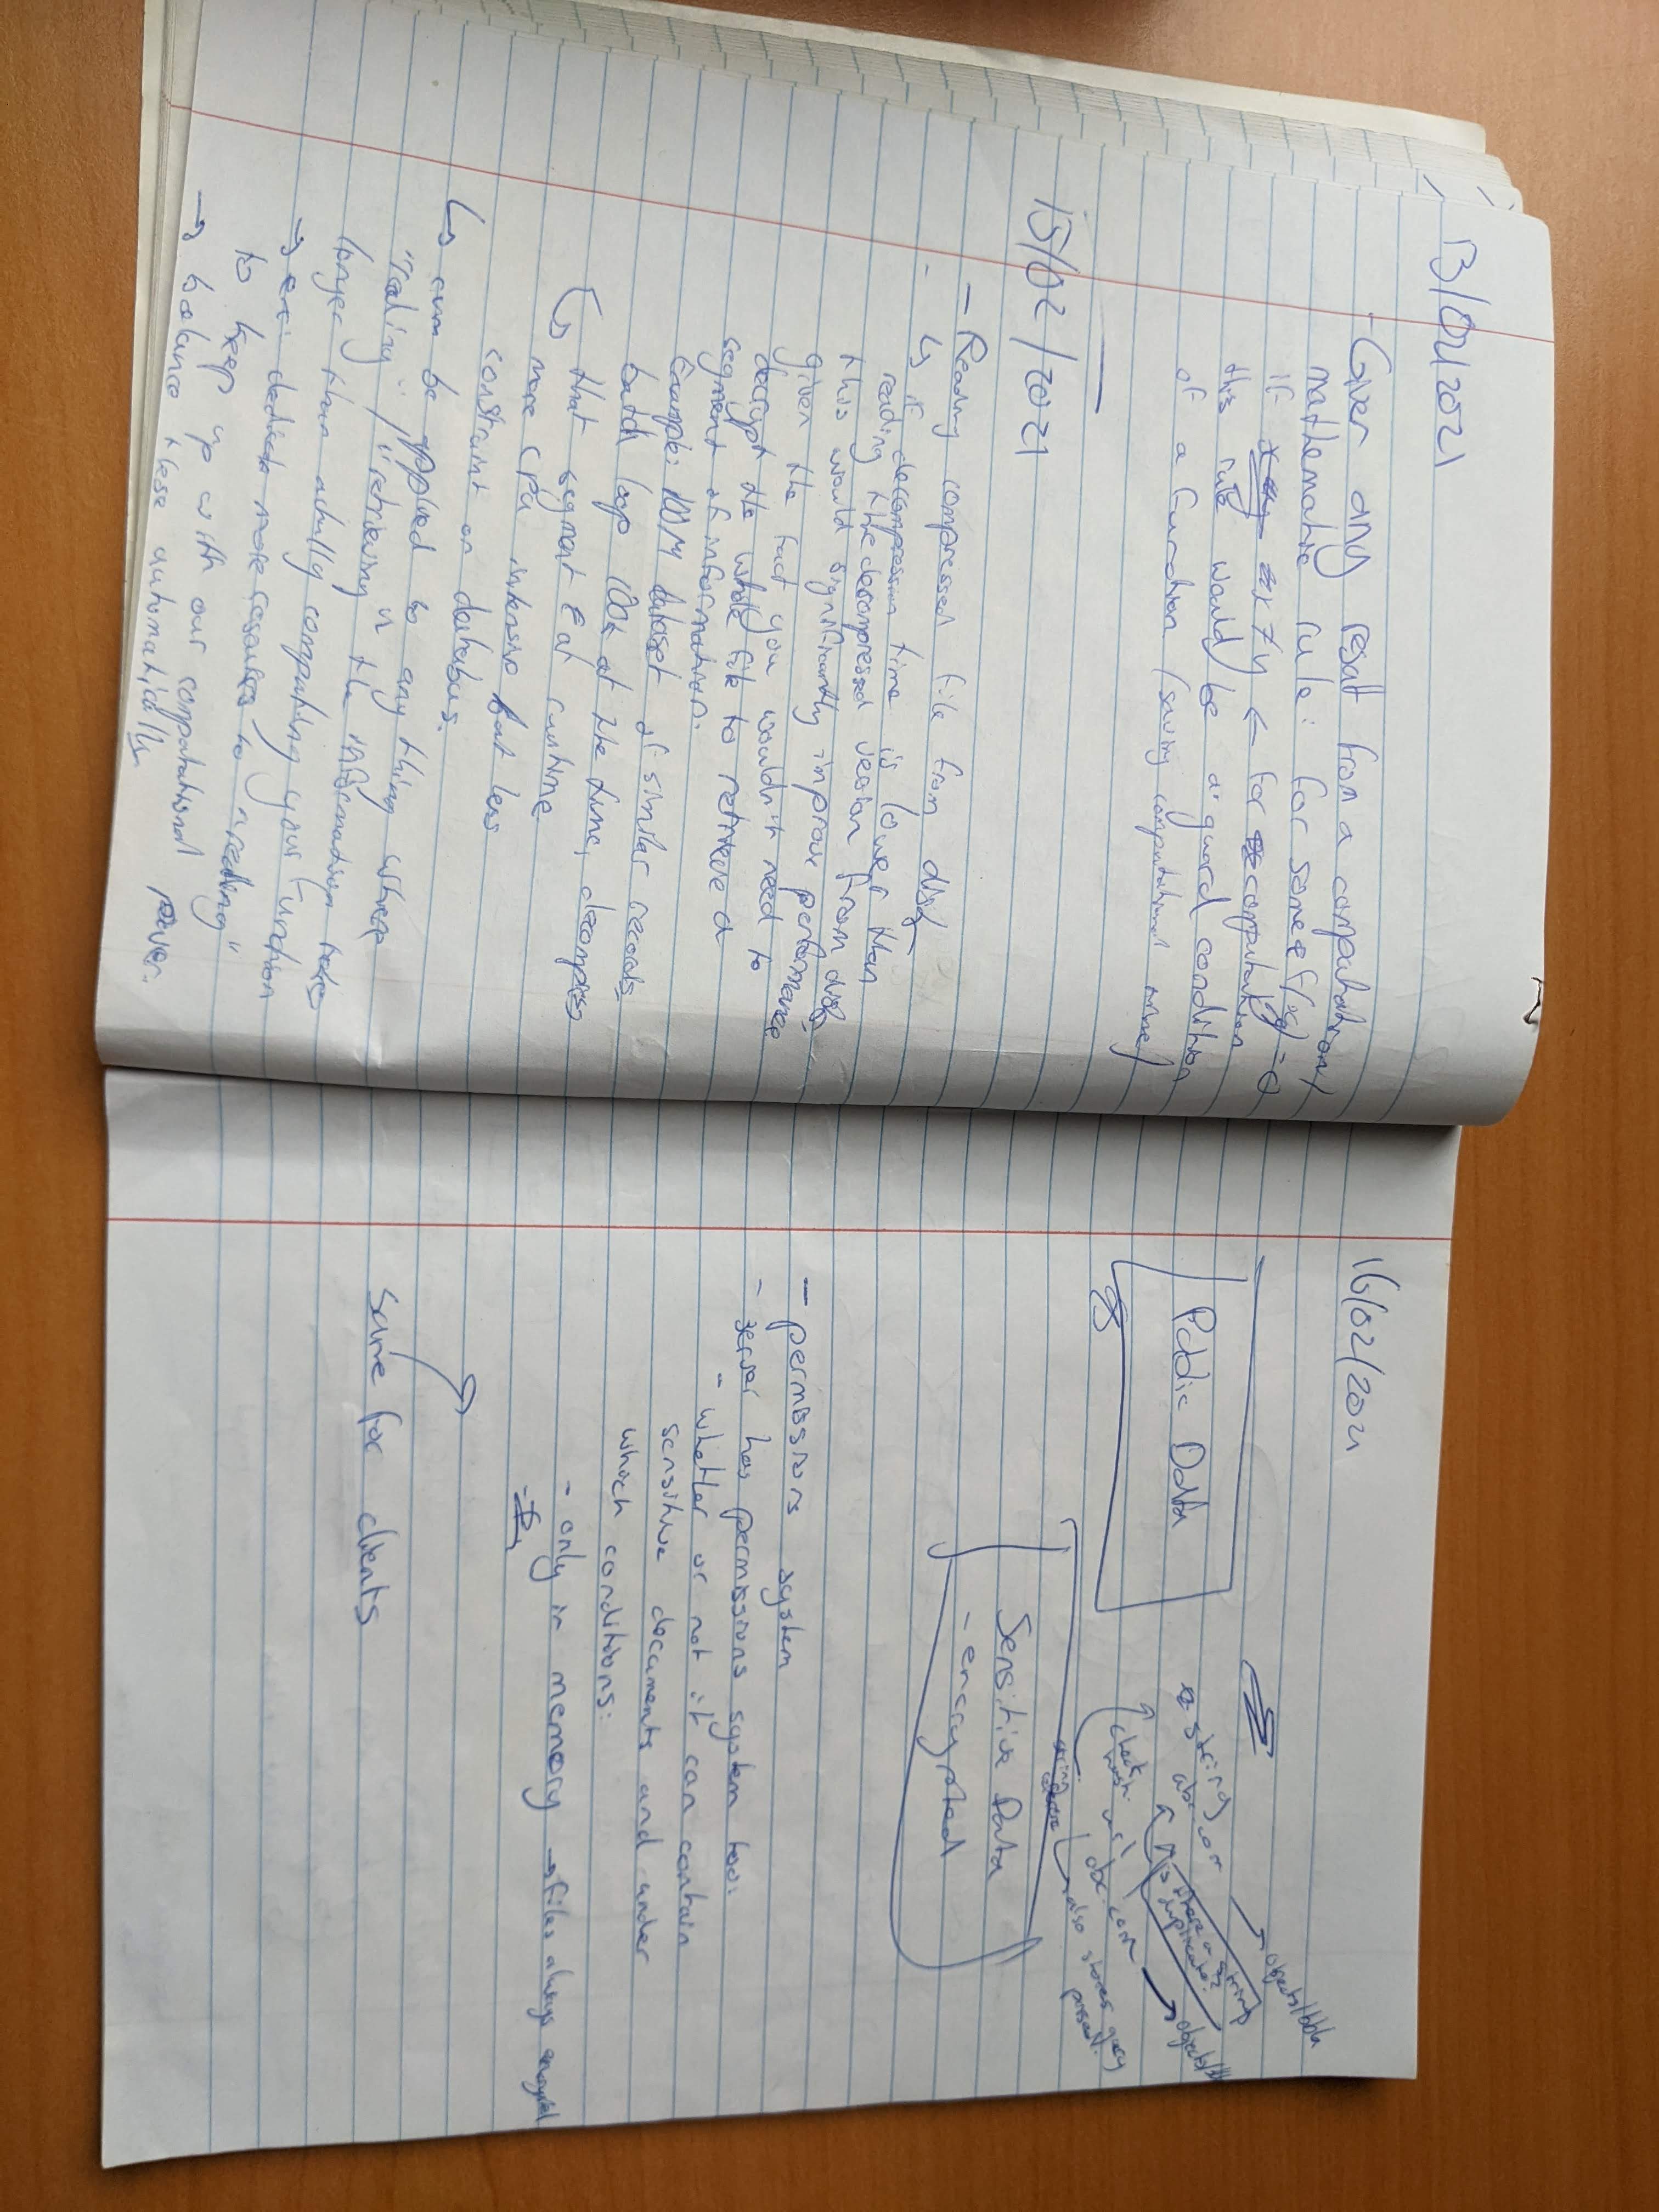 13/01/2021
- Given any result from a computation/
mathematic rule: for some f(x,y) = 0
if x ≠ y ← for computation
this rule would be a guard condition
of a function (saving computational time)
15/02/2021
- Reading compressed file from disk
↳ if decompression time is lower than
reading the decompressed version from disk,
this would significantly improve performance
given the fact you wouldn't need to
decrypt the whole file to retrieve a
segment of information.
Example: 100M dataset of similar records
batch loop 100k at the time, decompress
↳ that segment & at runtime
more CPU intense but less
constraint on database.
↳ can be applied to anything where
"reading"/"retrieving" the information takes
longer than actually computing your function
→ ex: dedicate more resources to "reading"
to keep up with our computational power.
→ balance these automatically
16/02/2021
Public Data
string
abc com → objects/bbla
is there a string
duplicate?
check
abc com → objects/
also stores query
present.
Sensitive Data
- encrypted
- permissions system
- server has permissions system too.
- whether or not it can contain
sensitive documents and under
which conditions:
- only in memory → files always encrypted
same for clients